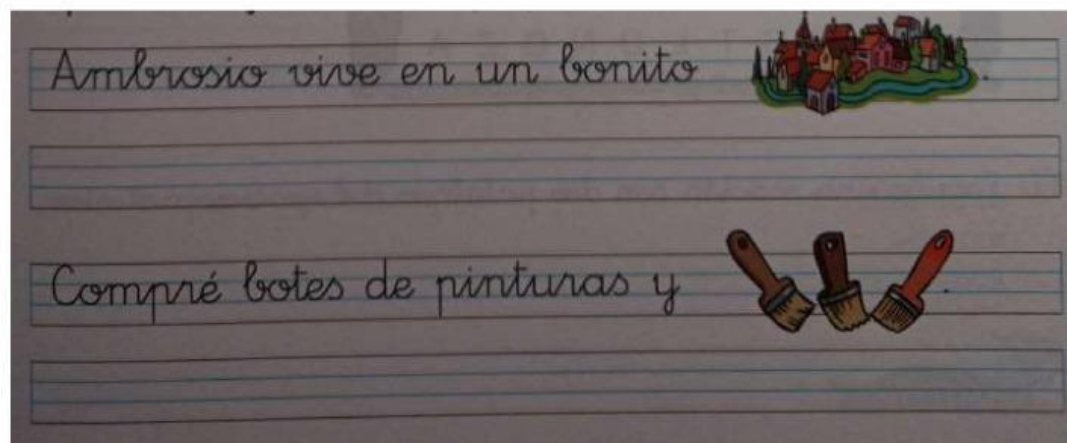 Ambrosio vive en un bonito .
Compré botes de pinturas y .